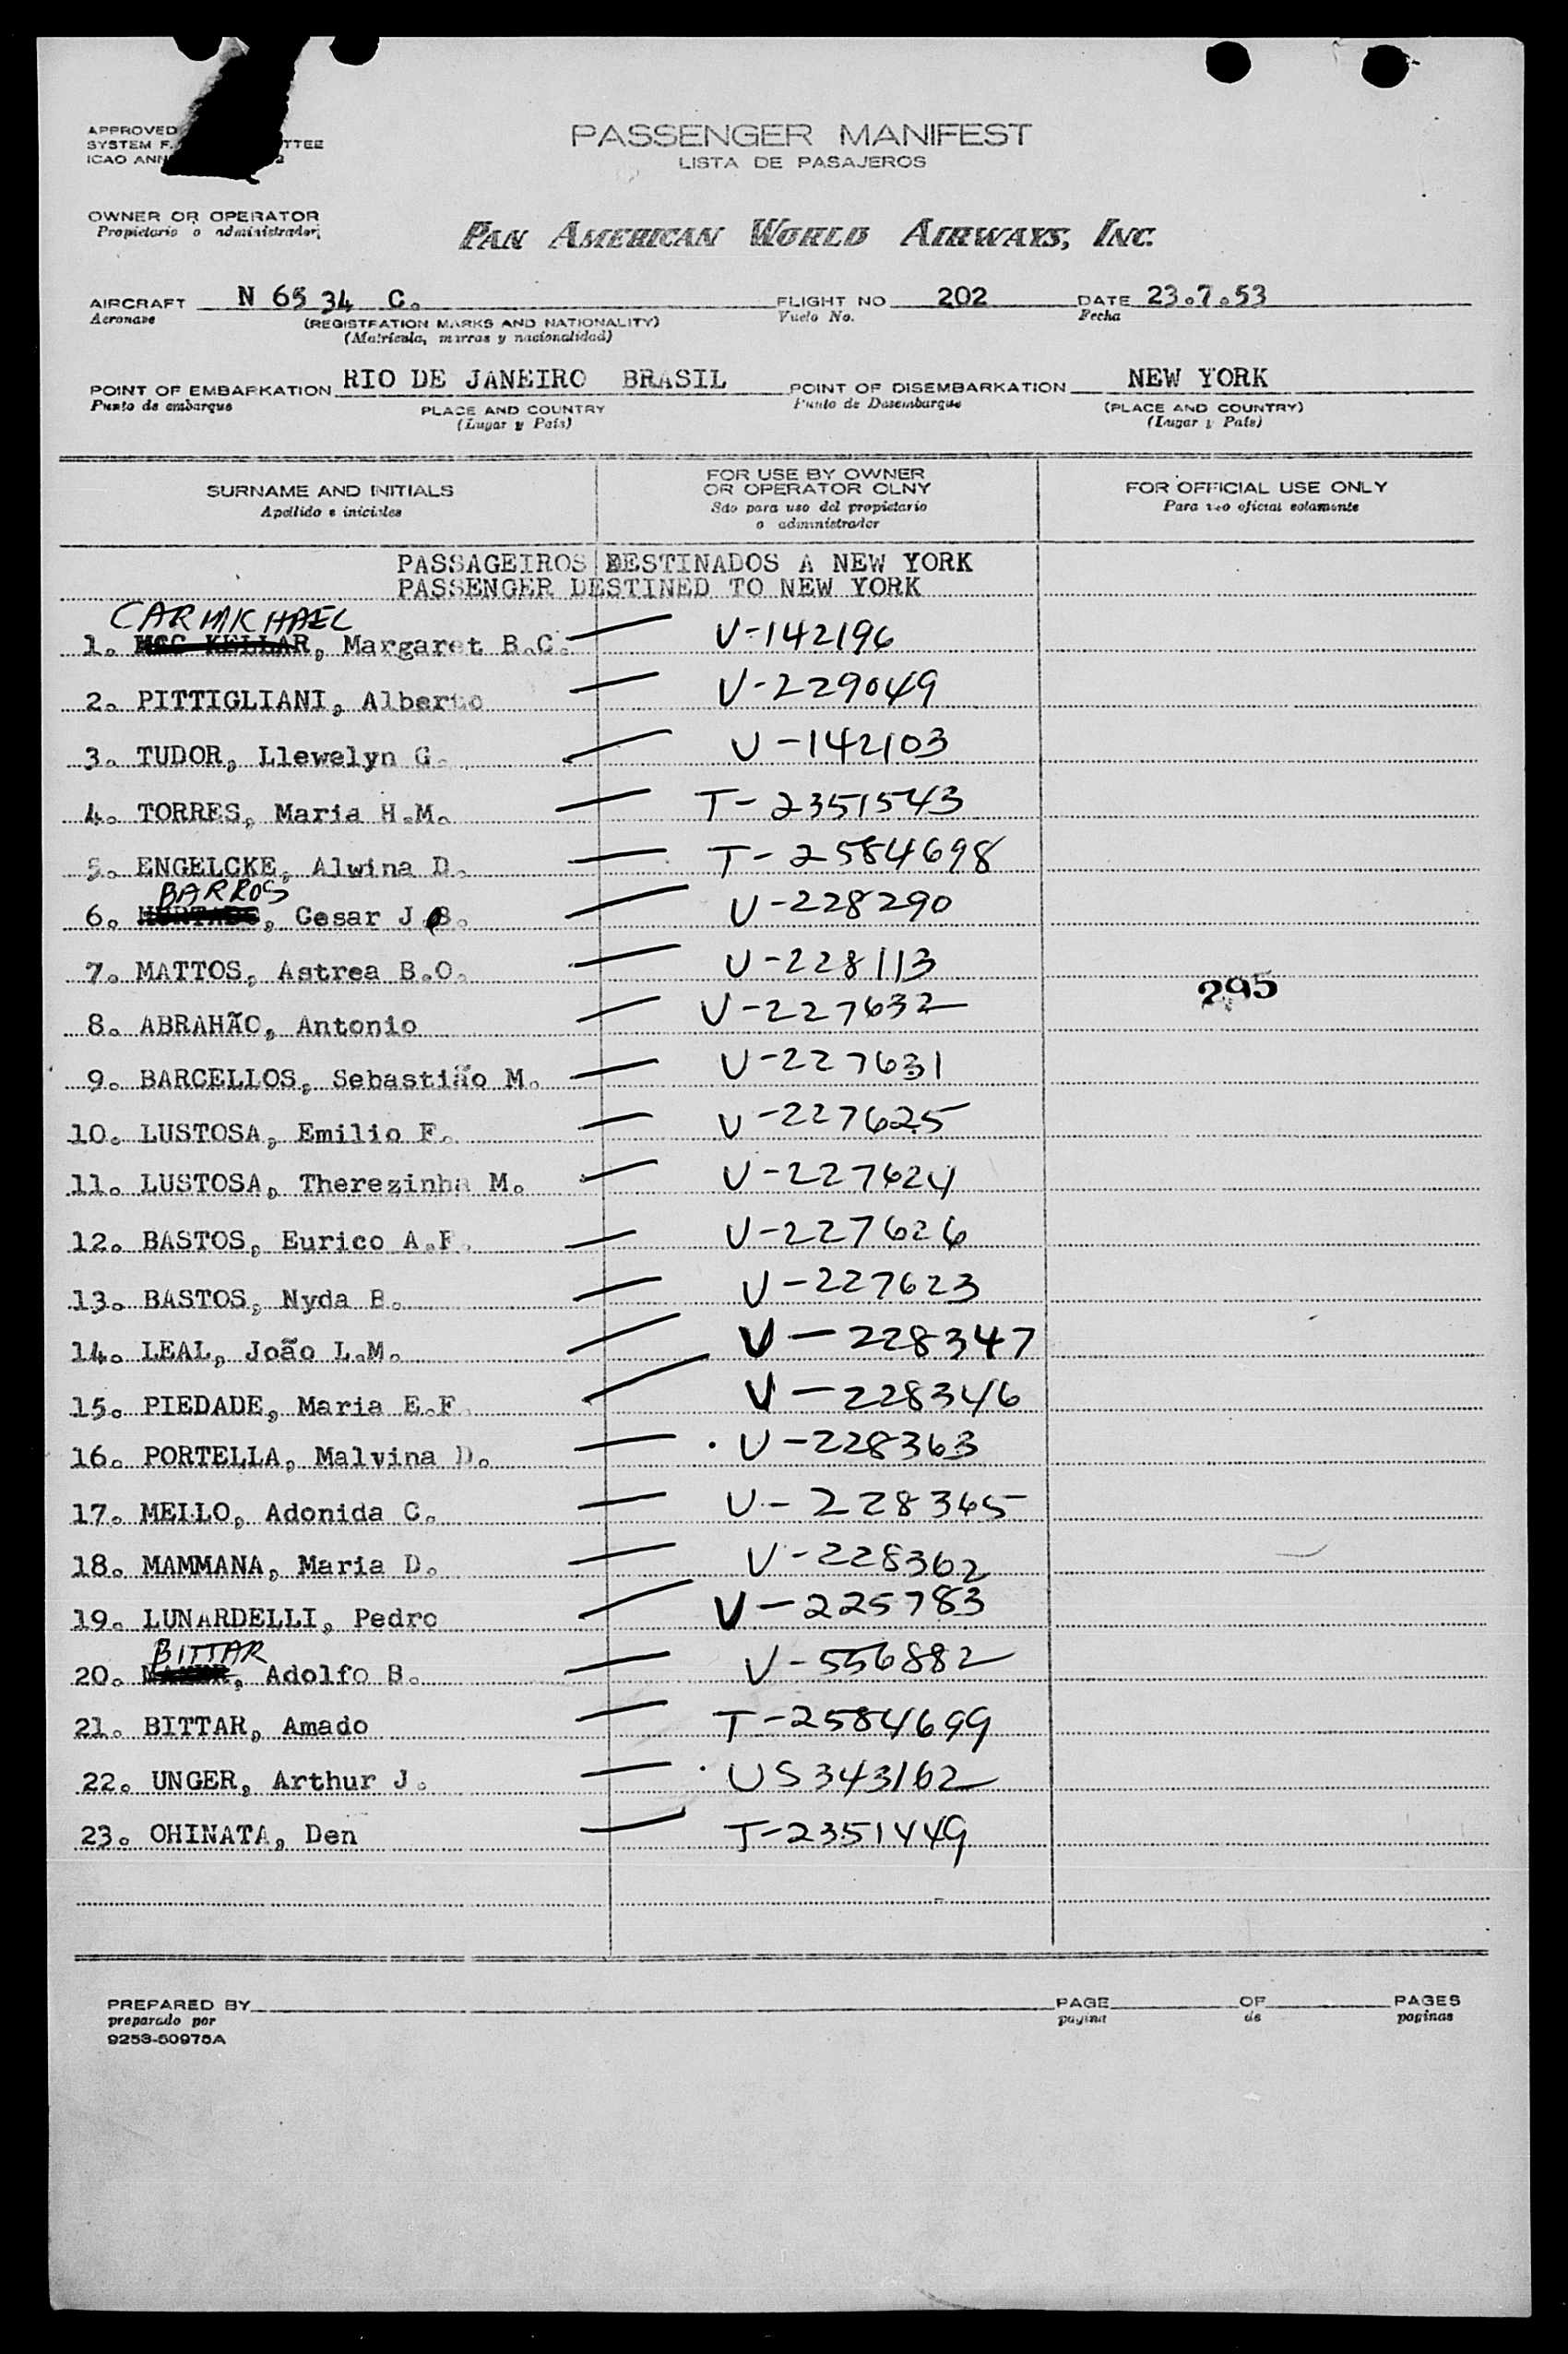 APPROVED
SYSTEM F. TTEE
ICAO ANN
PASSENGER MANIFEST
LISTA DE PASAJEROS
OWNER OR OPERATOR
Propietario o administrador
PAN AMERICAN WORLD AIRWAYS, INC.
AIRCRAFT N 6534 C. FLIGHT NO 202 DATE 23.7.53
Aeronave (REGISTRATION MARKS AND NATIONALITY) Vuelo No. Fecha
(Matricula, marcas y nacionalidad)
POINT OF EMBARKATION RIO DE JANEIRO BRASIL POINT OF DISEMBARKATION NEW YORK
Punto de embarque PLACE AND COUNTRY Punto de Desembarque (PLACE AND COUNTRY)
(Lugar y País) (Lugar y País)
SURNAME AND INITIALS FOR USE BY OWNER OR OPERATOR ONLY FOR OFFICIAL USE ONLY
Apellido e iniciales Sólo para uso del propietario o administrador Para uso oficial solamente
PASSAGEIROS DESTINADOS A NEW YORK
PASSENGER DESTINED TO NEW YORK
CARMICHAEL
1. MCC KELLAR, Margaret B.C. V-142196
2. PITTIGLIANI, Alberto V-229049
3. TUDOR, Llewelyn G. V-142103
4. TORRES, Maria H.M. T-2351543
5. ENGELCKE, Alwina D. T-2584698
BARROS
6. HURTADO, Cesar J.B. V-228290
7. MATTOS, Astrea B.O. V-228113
295
8. ABRAHÃO, Antonio V-227632
9. BARCELLOS, Sebastião M. V-227631
10. LUSTOSA, Emilio F. V-227625
11. LUSTOSA, Therezinha M. V-227624
12. BASTOS, Eurico A.F. V-227626
13. BASTOS, Nyda B. V-227623
14. LEAL, João L.M. V-228347
15. PIEDADE, Maria E.F. V-228346
16. PORTELLA, Malvina D. V-228363
17. MELLO, Adonida C. V-228365
18. MAMMANA, Maria D. V-228362
19. LUNARDELLI, Pedro V-225783
BITTAR
20. , Adolfo B. V-556882
21. BITTAR, Amado T-2584699
22. UNGER, Arthur J. US343162
23. OHINATA, Den T-2351449
PREPARED BY PAGE OF PAGES
preparado por pagina de paginas
9253-50975A